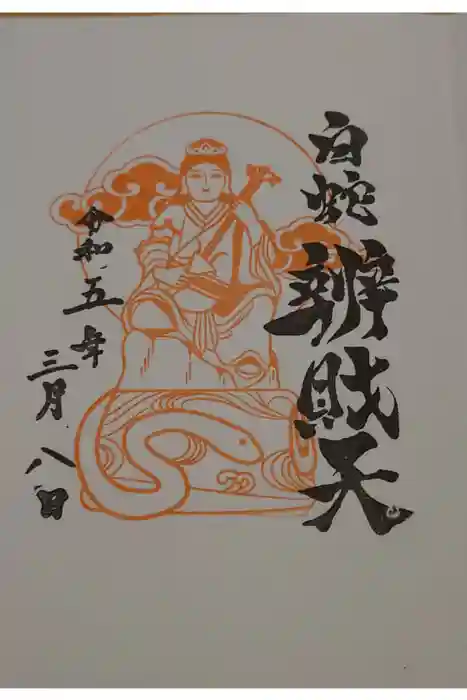 白蛇辨財天
令和五年
三月八日